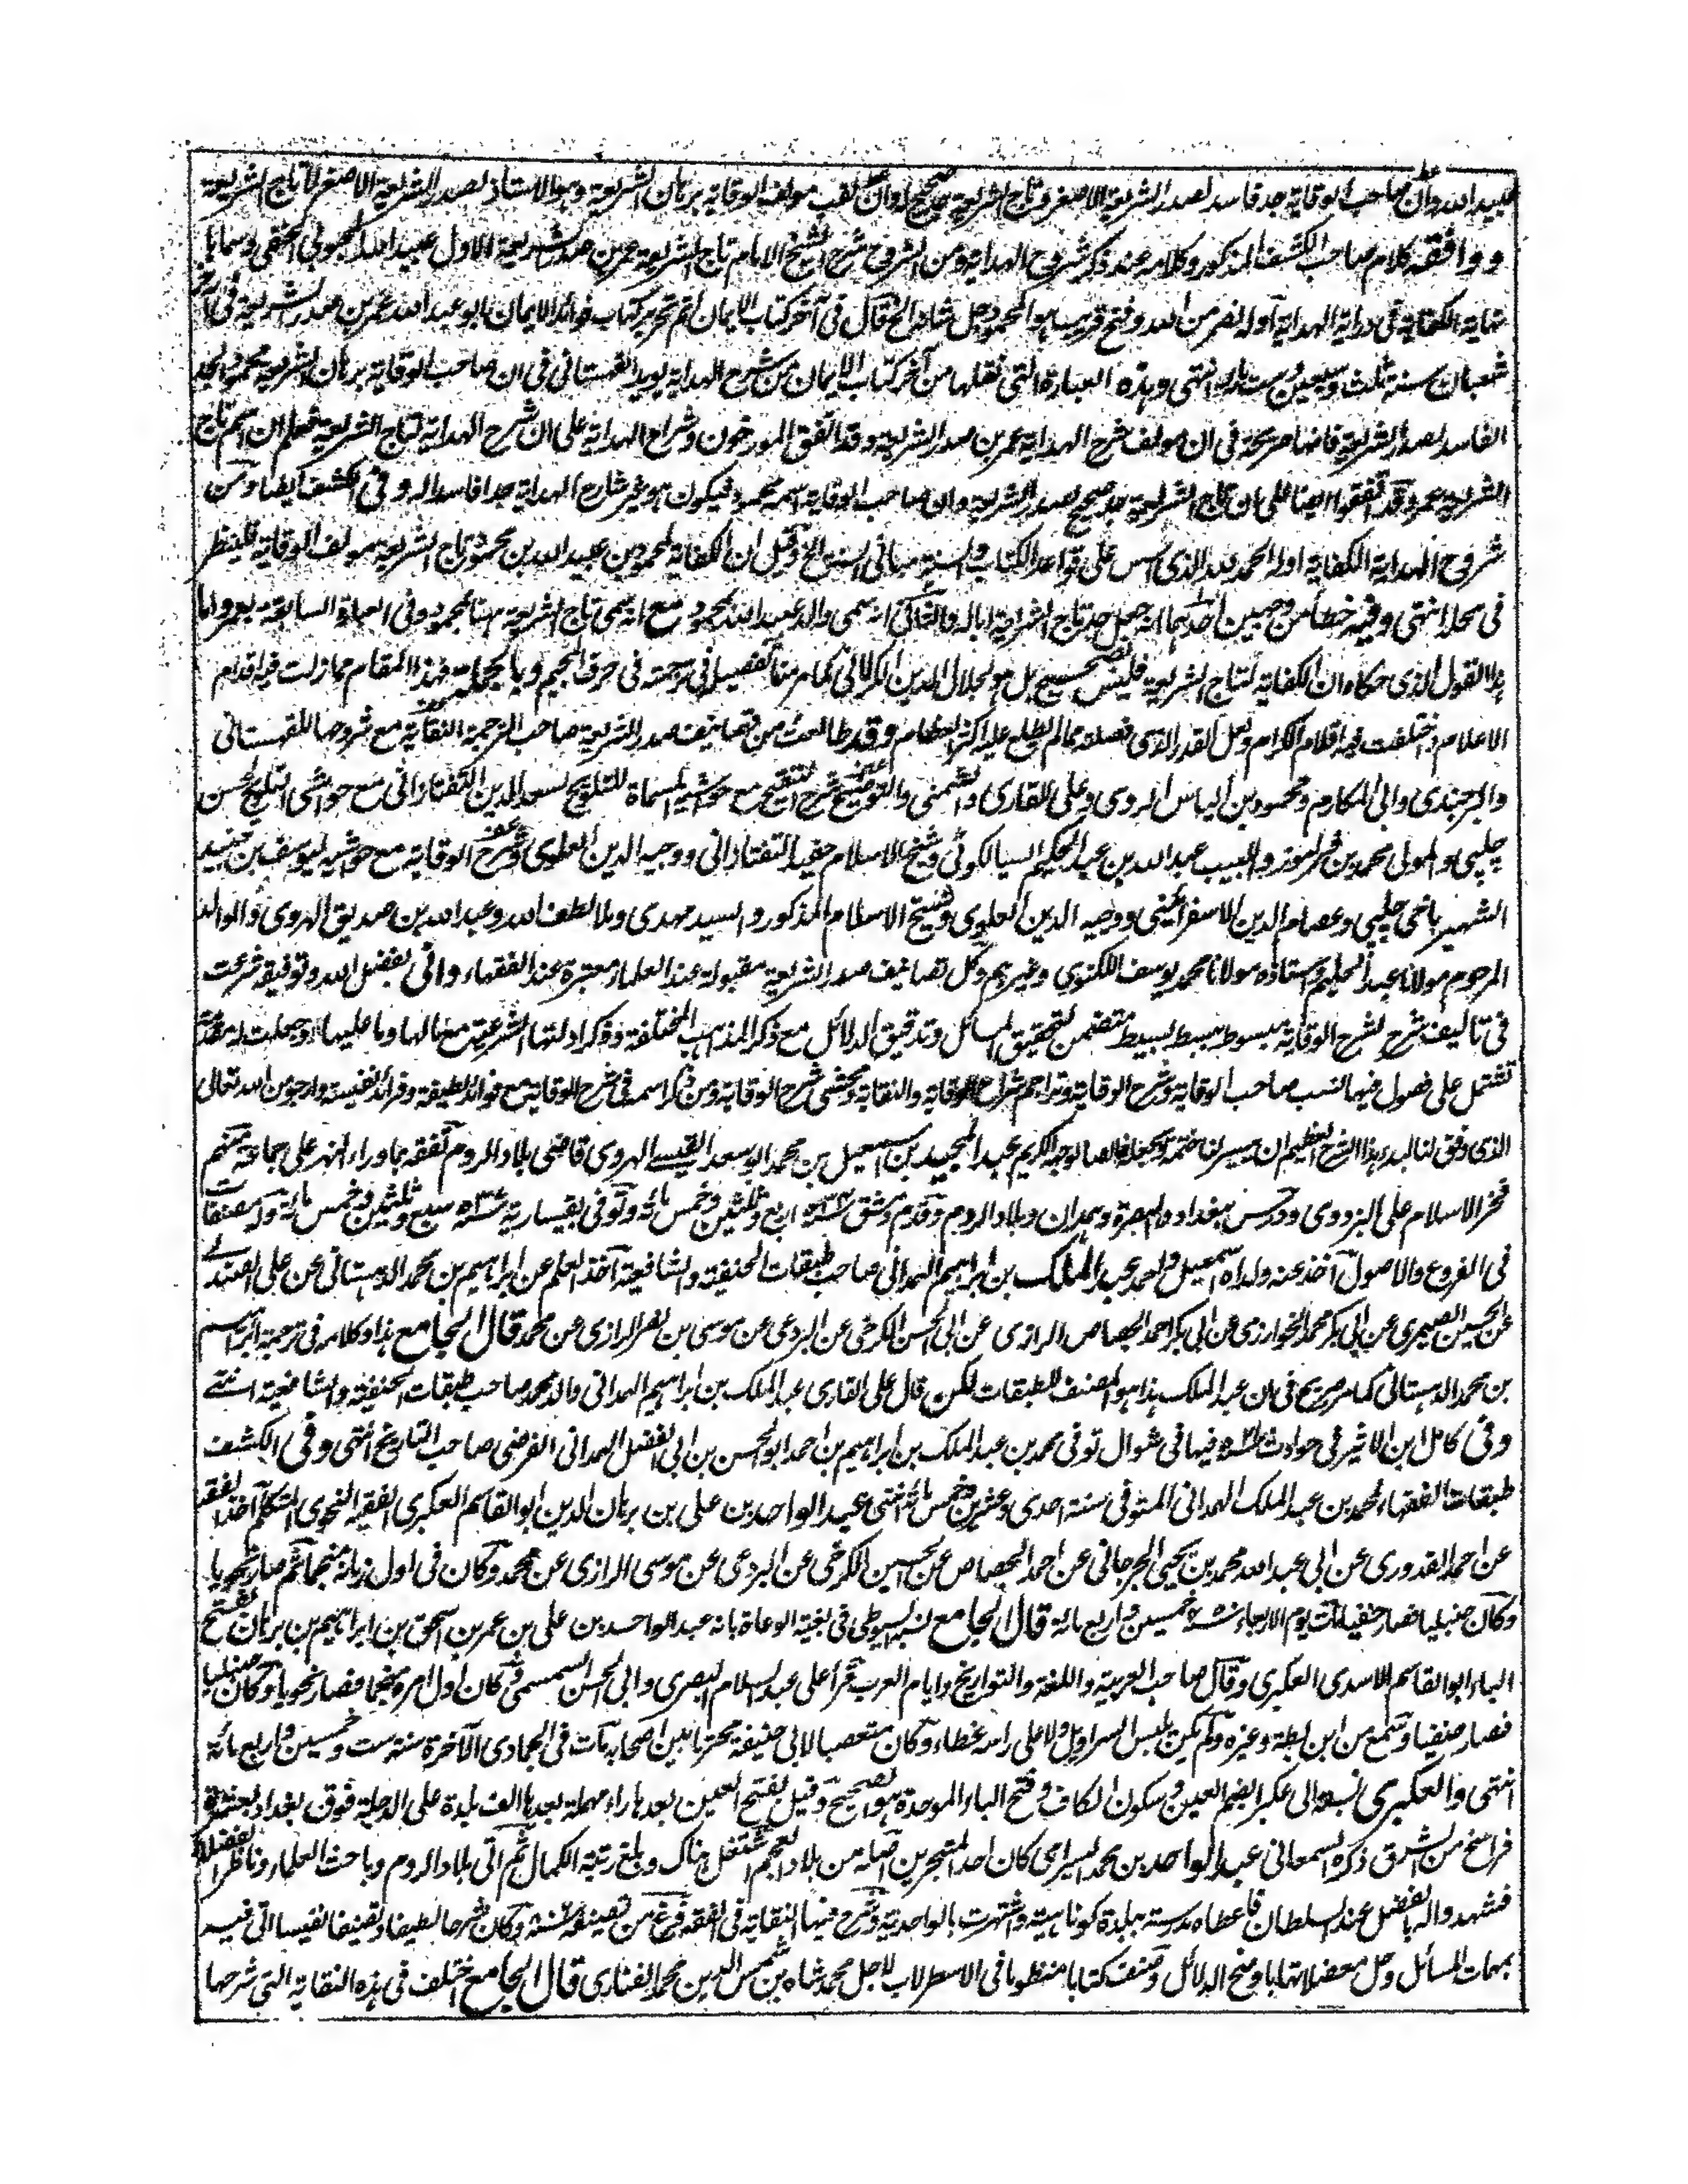 عبيد الله وان صاحب الوقاية جد فاسد لصدر الشريعة الاصغر وتاج الشريعة جد صحيح له وان لقب مؤلف الوقاية برهان الشريعة وهو الاستاذ لصدر الشريعة الاصغر لا تاج الشريعة
ووافقه كلام صاحب الكشف المذكور وكلامه عند ذكر شروح الهداية ومن الشروح شرح الشيخ الامام تاج الشريعة عمر بن صدر الشريعة الاول عبيد الله المحبوبي الحنفي وسماه
نهاية الكفاية في دراية الهداية اوله نصر من الله وفتح قريب هو المحمود جل شانه الخ قال في آخر كتاب الايمان تم تحرير كتاب فوائد الايمان ابو عبد الله عمر بن صدر الشريعة في
شعبان سنة ثلث وسبعين وست مائة انتهى وهذه العبارة التي نقلها من آخر كتاب الايمان من شرح الهداية يؤيد القهستاني في ان صاحب الوقاية برهان الشريعة محمود الجد
الفاسد لصدر الشريعة فانها صريحة في ان مولف شرح الهداية عمر بن صدر الشريعة وقد اتفق المورخون وشراح الهداية على ان شرح الهداية لتاج الشريعة فعلم ان اسم تاج
الشريعة عمر وقد اتفقوا ايضا على ان تاج الشريعة جد صحيح لصدر الشريعة وان صاحب الوقاية اسمه محمود فيكون هو غير شارح الهداية جدا فاسدا له وفي الكشف ايضا ومن
شروح الهداية الكفاية اوله الحمد لله الذي اسس على قواعد الكتاب والسنة مباني السنن الخ وقيل ان الكفاية لمحمود بن عبيد الله بن محمود تاج الشريعة مولف الوقاية فلينظر
في محله انتهى وفيه خطأ من وجهين احدهما انه جعل جد تاج الشريعة ابا له والثاني انه سمى والد عبيد الله بمحمود مع انه سمى تاج الشريعة ههنا بمحمود وفي العبارة السابقة بعمر واما
هذا القول الذي حكاه ان الكفاية لتاج الشريعة فليس بصحيح بل هو لجلال الدين الكرلاني كما مر منا تفصيله في ترجمته في حرف الجيم وبالجملة فهذا المقام مما زلت فيه اقدام
الاعلام واختلفت فيه اقلام الكرام ولعل القدر الذي فصلته مما لم يطلع عليه اكثر العظام وقد طالعت من تصانيف صدر الشريعة صاحب الترجمة النقاية مع شروحها للقهستاني
والبرجندي وابي المكارم ومحمود بن الياس الرومي وعلي القاري والشمني والتوضيح شرح التنقيح مع حواشيه المسماة للتلويح لسعد الدين التفتازاني مع حواشي التلويح لحسن
چلپي والمولى محمد بن فرامرز واللبيب عبد الله بن عبد الحكيم السيالكوٹي وشيخ الاسلام حفيد التفتازاني ووجيه الدين العلوي وشرح الوقاية مع حواشيه ليوسف بن جنيد
الشهير باخي چلپي وعصام الدين الاسفرائيني ووجيه الدين العلوي وشيخ الاسلام المذكور والسيد مهدي وملا لطف الله وعبد الله بن صديق الهروي والوالد
المرحوم مولانا عبد الحليم واستاذه مولانا محمد يوسف اللكنوي وغيرهم وكل تصانيف صدر الشريعة مقبولة عند العلماء معتبرة عند الفقهاء واني بفضل الله وتوفيقه شرعت
في تاليف شرح لشرح الوقاية مبسوط ببسط بسيط متضمن لتحقيق المسائل وتدقيق الدلائل مع ذكر المذاهب المختلفة وذكر ادلتها الشرعية مع ما لها وما عليها وجعلت له مقدمة
تشتمل على فصول فيها نسب صاحب الوقاية وشرح الوقاية وتراجم شراح الوقاية والنقاية ومحشي شرح الوقاية ومن ذكر اسمه في شرح الوقاية مع فوائد لطيفة وفرائد نفيسة وارجو من الله تعالى
الذي وفق لنا البدء بهذا الشرح العظيم ان ييسر لنا ختمه ويجعله خالصا لوجهه الكريم عبد المجيد بن اسمعيل بن محمد ابو سعد القيسي الهروي قاضي بلاد الروم تفقه بما وراء النهر على جماعة منهم
فخر الاسلام علي البزدوي ودرس ببغداد والبصرة وهمدان وبلاد الروم وقدم دمشق سنة ٥٣٤ اربع وثلثين وخمس مائة وتوفي بقيسارية سنة ٥٣٧ سبع وثلثين وخمس مائة وله مصنفات
في الفروع والاصول آخذ عنه ولداه اسمعيل واحمد عبد الملك بن ابراهيم الهمداني صاحب طبقات الحنفية والشافعية آخذ العلم عن ابراهيم بن محمد الدهستاني عن علي الصندلي
عن الحسين الصيمري عن ابي بكر محمد الخوارزمي عن ابي بكر احمد الجصاص الرازي عن ابي الحسن الكرخي عن البردعي عن موسى بن نصر الرازي عن محمد قال الجامع هذا وكلامه في ترجمة ابراهيم
بن محمد الدهستاني كما مر صريح في ان عبد الملك هذا هو المصنف للطبقات لكن قال علي القاري عبد الملك بن ابراهيم الهمداني والد محمد صاحب طبقات الحنفية والشافعية انتهى
وفي كامل ابن الاثير في حوادث سنة ٥٢١ فيها في شوال توفي محمد بن عبد الملك بن ابراهيم بن احمد ابو الحسن بن ابي الفضل الهمداني الفرضي صاحب التاريخ انتهى وفي الكشف
طبقات الفقهاء لمحمد بن عبد الملك الهمداني المتوفى سنة احدى وعشرين وخمس مائة انتهى عبد الواحد بن علي بن برهان الدين ابو القاسم العكبري الفقيه النحوي المتكلم آخذ الفقه
عن احمد القدوري عن ابي عبد الله محمد بن يحيى الجرجاني عن احمد الجصاص عن الحسين الكرخي عن البردعي عن موسى الرازي عن محمد وكان في اول زمانه منجما ثم صار نحويا
وكان حنبليا فصار حنفيا مات يوم الاربعاء سنة ٤٥٠ خمسين واربع مائة قال الجامع نسبه السيوطي في بغية الوعاة بانه عبد الواحد بن علي بن عمر بن اسحق بن ابراهيم بن برهان بفتح
الباء ابو القاسم الاسدي العكبري وقال صاحب العربية واللغة والتواريخ وايام العرب قرأ على عبد السلام البصري وابي الحسن السمسمي وكان اول امره منجما فصار نحويا وكان حنبليا
فصار حنفيا وسمع من ابن بطة وغيره ولم يكن يلبس السراويل ولا على راسه غطاء وكان متعصبا لابي حنيفة محترما بين اصحابه مات في الجمادى الآخرة سنة ست وخمسين واربع مائة
انتهى والعكبري نسبة الى عكبرا بضم العين وسكون الكاف وفتح الباء الموحدة هو الصحيح وقيل بفتح العين بعدها راء مهملة بعدها الف بلدة على الدجلة فوق بغداد بعشرة
فراسخ من الشرق ذكره السمعاني عبد الواحد بن محمد السيرامي كان احد المتبحرين اصله من بلاد العجم اشتغل هناك وبلغ رتبة الكمال ثم اتى بلاد الروم وباحث العلماء وناظر الفضلاء
فشهدوا له بالفضل عند السلطان فاعطاه مدرسة ببلدة كوتاهية واشتهرت بالواحدية وشرح فيها النقاية في الفقه فرغ من تصنيفه سنة وكان شرحا لطيفا وتصنيفا نفيسا اتى فيه
بمهمات المسائل وحل معضلاتها باوضح الدلائل وصنف كتابا منظوما في الاسطرلاب لاجل محمد شاه بن شمس الدين محمد الفناري قال الجامع اختلف في هذه النقاية التي شرحها